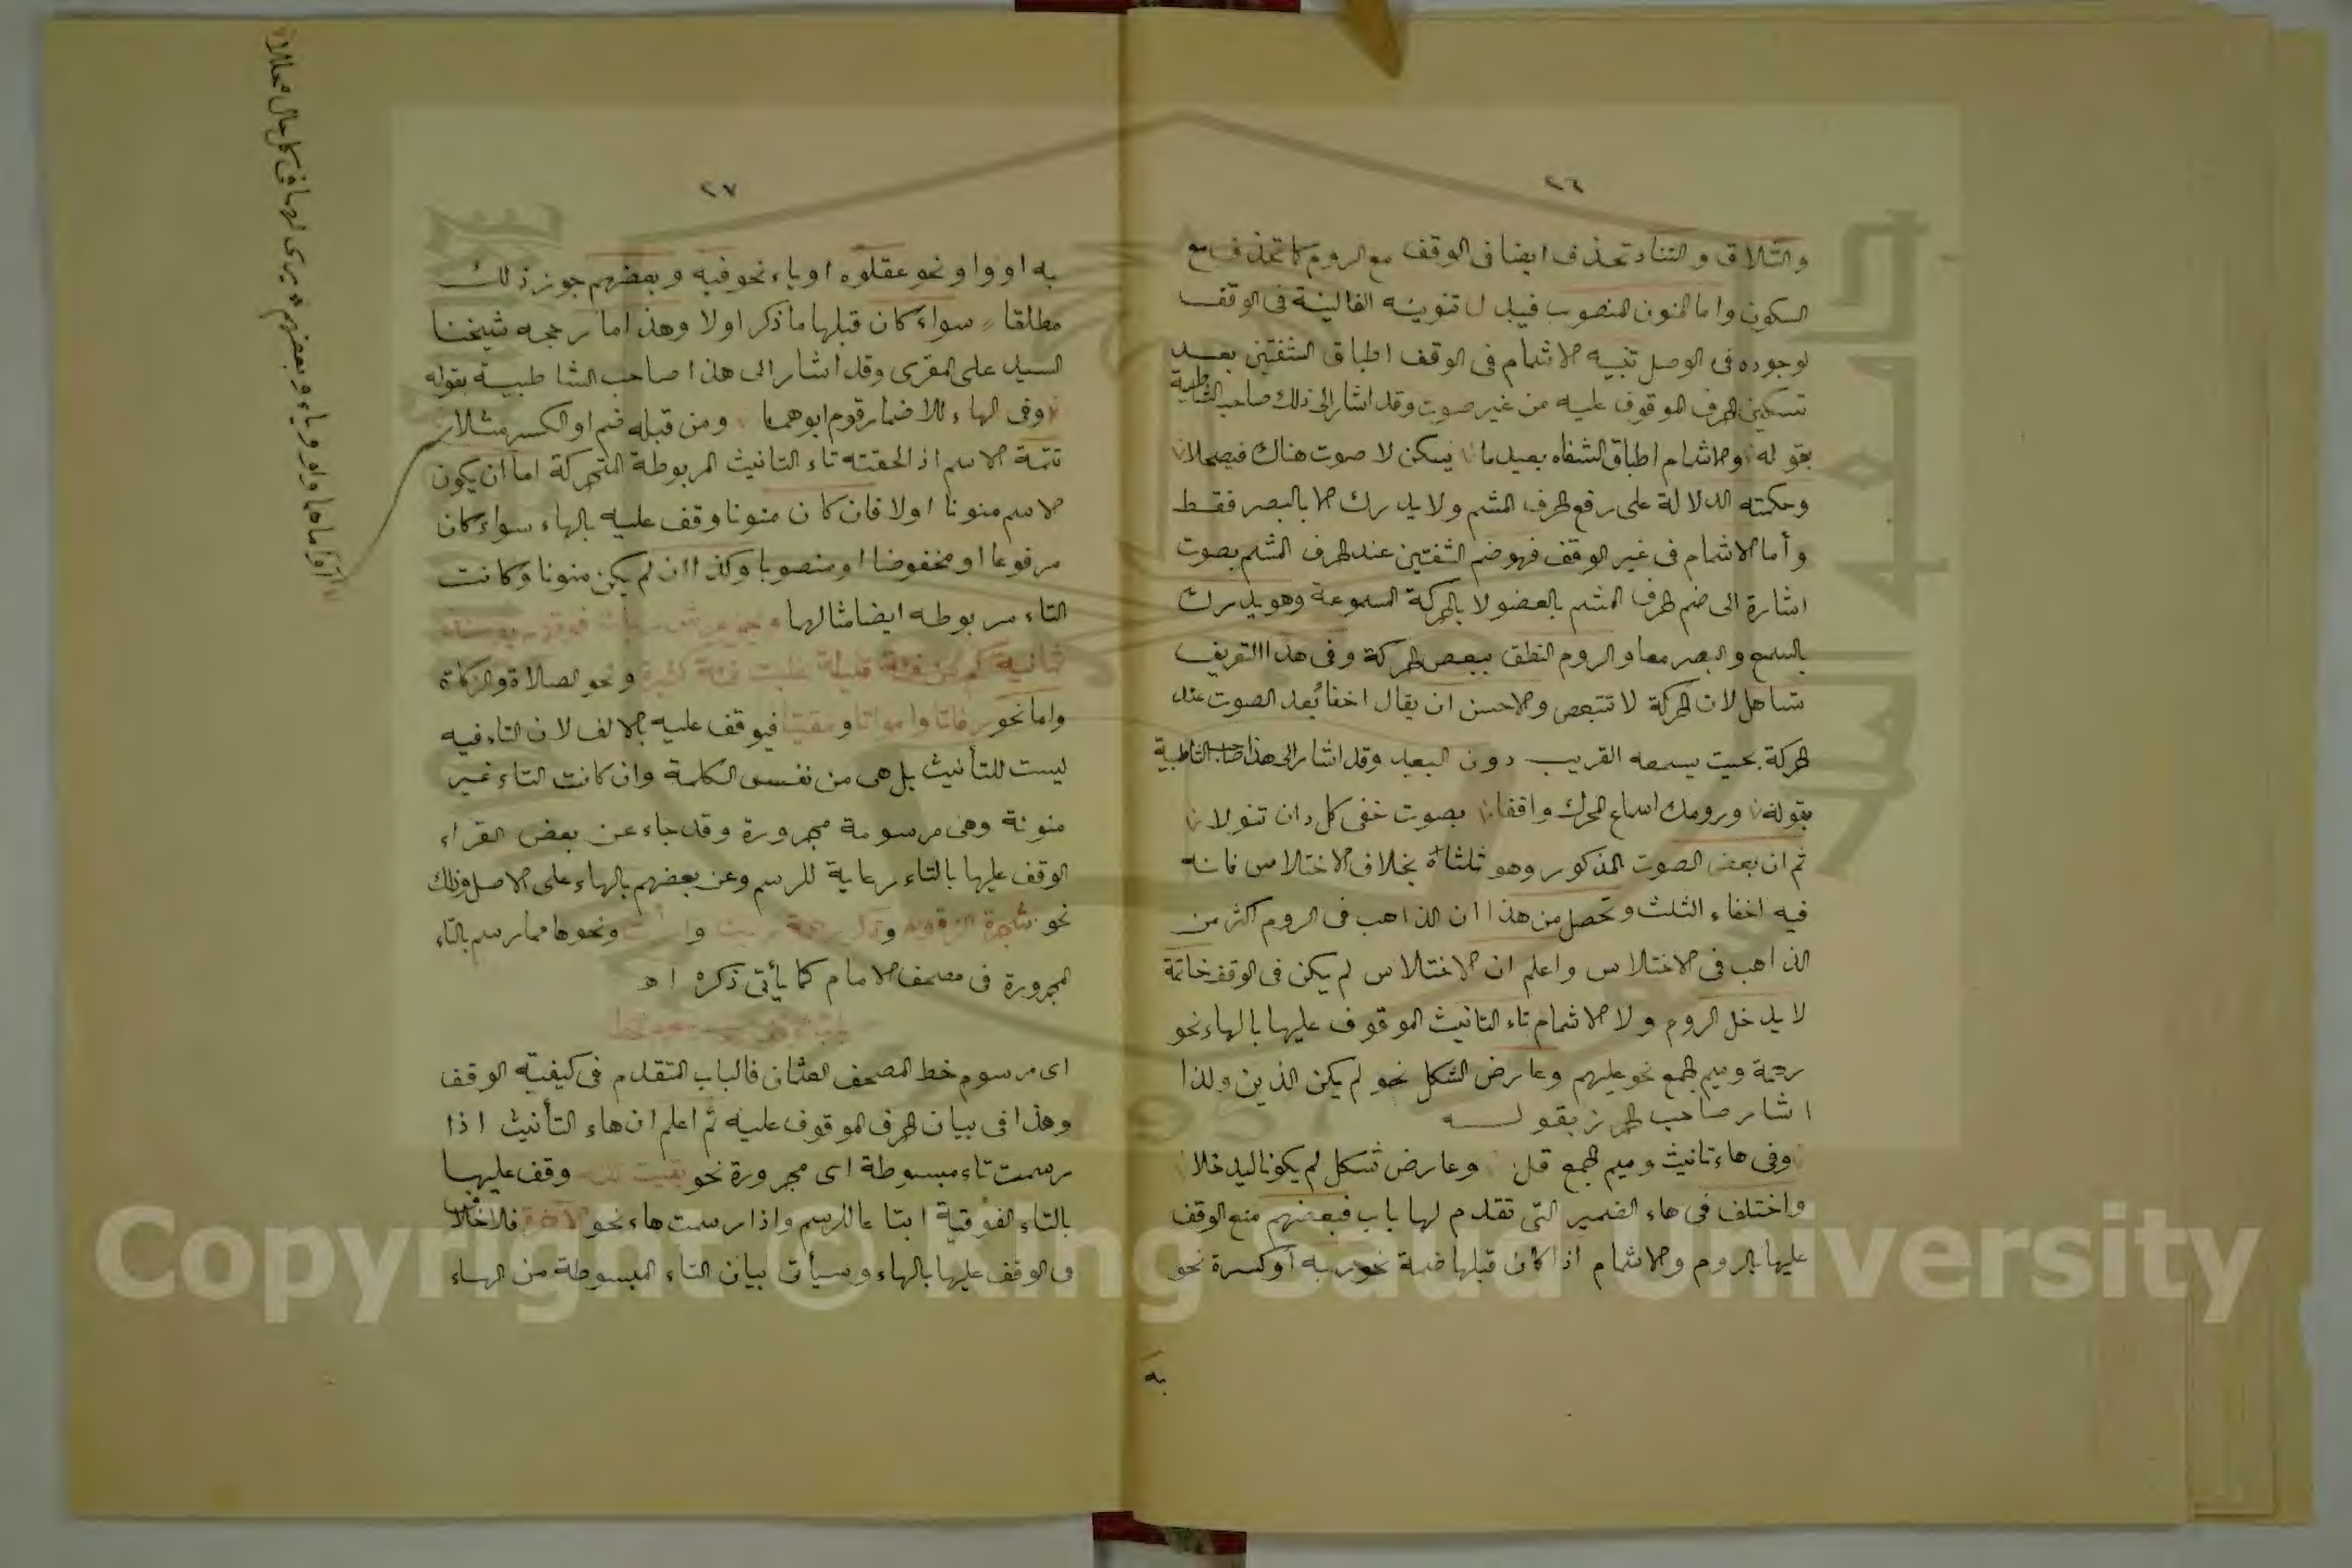 ٢٦
والتلاق والتناد تحذف ايضا فى الوقف مع الروم كما تحذف مع
السكون واما المنون المنصوب فيبدل تنوينه الفا لينة فى الوقف
لوجوده فى الوصل تنبيه الاشمام فى الوقف اطباق الشفتين بعد
تسكين الحرف الموقوف عليه من غير صوت وقد اشار الى ذلك صاحب الشاطبية
بقوله والاشمام اطباق الشفاه بعيد ما يسكن لا صوت هناك فيصحلا
وحكمته الدلالة على رفع الحرف المشم ولا يدرك الا بالبصر فقط
وأما الاشمام فى غير الوقف فهو ضم الشفتين عند الحرف المشم بصوت
اشارة الى ضم الحرف المشم بالعضو لا بالحركة المسموعة وهو يدرك
بالسمع والبصر معا والروم النطق ببعض الحركة وفى هذا التعريف
تساهل لان الحركة لا تتبعض والاحسن ان يقال اخفا بعد الصوت عند
الحركة بحيث يسمعه القريب دون البعيد وقد اشار الى هذا صاحب الشاطبية
بقوله ورومك اسماع المحرك واقفا بصوت خفى كل دان تنولا
ثم ان بعض الصوت المذكور وهو ثلثاه بخلاف الاختلاس فانه
فيه اخفاء الثلث وتحصل من هذا ان الذاهب فى الروم اكثر من
الذاهب فى الاختلاس واعلم ان الاختلاس لم يكن فى الوقف خاتمة
لا يدخل الروم ولا الاشمام تاء التانيث الموقوف عليها بالهاء نحو
رحمة وميم الجمع نحو عليهم وعارض الشكل نحو لم يكن الذين ولذا
اشار صاحب الحرز بقوله
وفى هاء تانيث وميم الجمع قل وعارض شكل لم يكونا ليدخلا
واختلف فى هاء الضمير التى تقدم لها باب فبعضهم منع الوقف
عليها بالروم والاشمام اذا كان قبلها ضمة نحو ربه أو كسرة نحو
به
٢٧
به او واو نحو عقلوه او ياء نحو فيه وبعضهم جوز ذلك
مطلقا سواء كان قبلها ما ذكر اولا وهذا ما رجحه شيخنا
السيد على المقرى وقد اشار الى هذا صاحب الشاطبية بقوله
وفى الهاء للاضمار قوم ابوهما ومن قبله ضم او الكسر مثلا
او اماهما واو وياء وبعضهم يرى لهما فى كل حال محللا
تتمة الاسم اذ الحقته تاء التانيث المربوطة المتحركة اما ان يكون
الاسم منونا اولا فان كان منونا وقف عليه بالهاء سواء كان
مرفوعا او مخفوضا او منصوبا وكذا ان لم يكن منونا وكانت
التاء مربوطه ايضا مثالهما
ثمانية كم من فئة قليلة غلبت فئة كثيرة ونحو الصلاة والزكاة
واما نحو رفاتا وامواتا ومقيتا فيوقف عليه بالالف لان التاء فيه
ليست للتأنيث بل هى من نفس الكلمة وان كانت التاء غير
منونة وهى مرسومة مجرورة وقد جاء عن بعض القراء
الوقف عليها بالتاء رعاية للرسم وعن بعضهم بالهاء على الاصل وذلك
نحو شجرة الزقوم و و ونحوها مما رسم بالتاء
المجرورة فى مصحف الامام كما يأتى ذكره اه
اى مرسوم خط المصحف العثمانى فالباب المتقدم فى كيفية الوقف
وهذا فى بيان الحرف الموقوف عليه ثم اعلم ان هاء التأنيث اذا
رسمت تاء مبسوطة اى مجرورة نحو بقيت الله وقف عليها
بالتاء الفوقية اتباعا للرسم واذا رسمت هاء نحو الاخرة فلا خلاف
فى الوقف عليها بالهاء وسيأتى بيان التاء المبسوطة من الهاء
Copyright © King Saud University